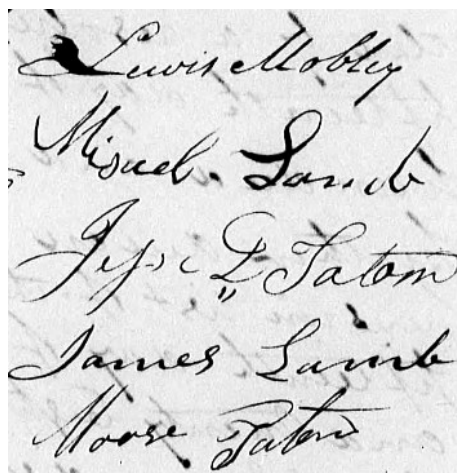 Lewis Mobley
Misael Lamb
Jesse D Tatom
James Lamb
Moore Tatom